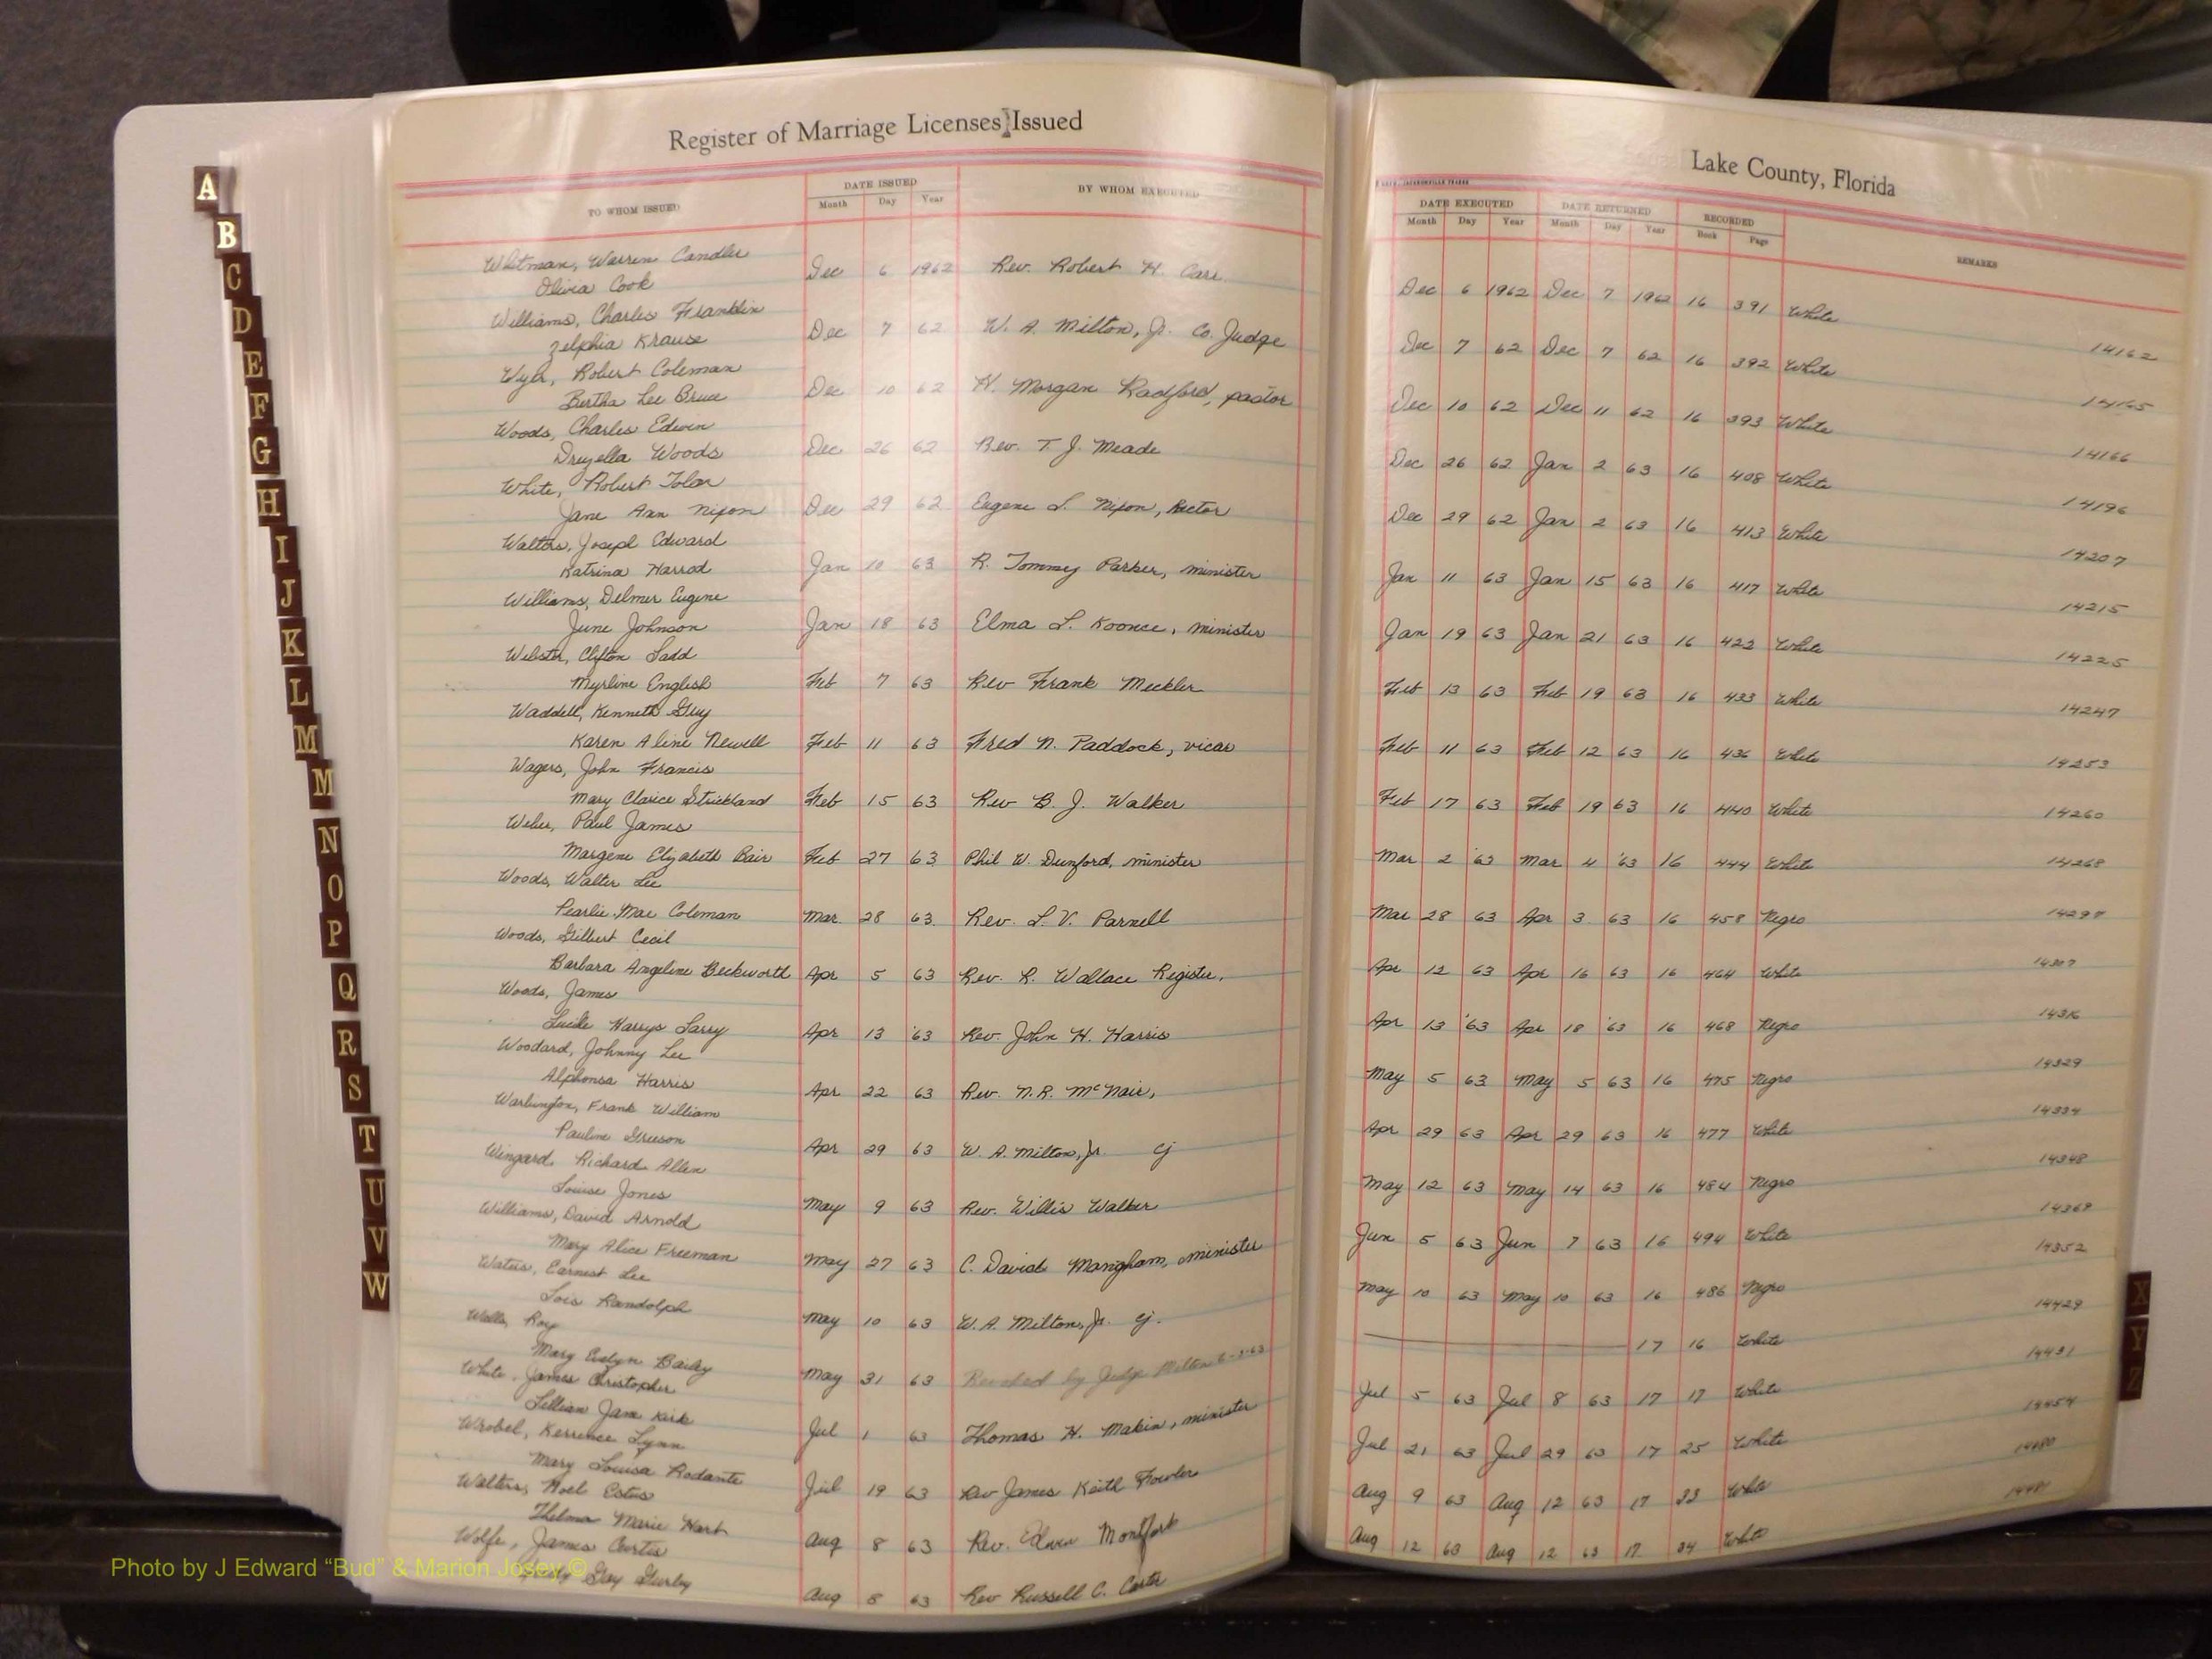 Register of Marriage Licenses Issued
Lake County, Florida
TO WHOM ISSUED
DATE ISSUED
Month Day Year
BY WHOM EXECUTED
DATE EXECUTED
Month Day Year
DATE RETURNED
Month Day Year
RECORDED
Book Page
REMARKS
Whitman, Warren Candler
Olivia Cook
Dec 6 1962 Rev. Robert H. Carr Dec 6 1962 Dec 7 1962 16 391 White
14162
Williams, Charles Franklin
Zelphia Krause
Dec 7 62 W. A. Milton, Jr. Co. Judge Dec 7 62 Dec 7 62 16 392 White
14165
Wyer, Robert Coleman
Bertha Lee Bruce
Dec 10 62 H. Morgan Radford, pastor Dec 10 62 Dec 11 62 16 393 White
14166
Woods, Charles Edwin
Druzella Woods
Dec 26 62 Rev. T. J. Meade Dec 26 62 Jan 2 63 16 408 White
14196
White, Robert Tolar
Jane Ann Nipon
Dec 29 62 Eugene L. Nipon, Rector Dec 29 62 Jan 2 63 16 413 White
14207
Walters, Joseph Edward
Katrina Harrod
Jan 10 63 R. Tommy Parker, minister Jan 11 63 Jan 15 63 16 417 White
14215
Williams, Delmer Eugene
June Johnson
Jan 18 63 Elma L. Koonce, minister Jan 19 63 Jan 21 63 16 422 White
14225
Webster, Clifton Ladd
Myrline English
Feb 7 63 Rev Frank Meckler Feb 13 63 Feb 19 63 16 433 White
14247
Waddell, Kenneth Guy
Karen Aline Newell
Feb 11 63 Fred N. Paddock, vicar Feb 11 63 Feb 12 63 16 436 White
14253
Wagers, John Francis
Mary Clarice Strickland
Feb 15 63 Rev B. J. Walker Feb 17 63 Feb 19 63 16 440 White
14260
Weber, Paul James
Margene Elizabeth Bair
Feb 27 63 Phil W. Dunford, minister Mar 2 '63 Mar 4 '63 16 444 White
14268
Woods, Walter Lee
Pearlie Mae Coleman
Mar. 28 63 Rev. L. V. Parnell Mar 28 63 Apr 3 63 16 458 Negro
14297
Woods, Gilbert Cecil
Barbara Angeline Beckworth
Apr 5 63 Rev. R. Wallace Register, Apr 12 63 Apr 16 63 16 464 White
14307
Woods, James
Lucile Harrys Larry
Apr 13 '63 Rev. John H. Harris Apr 13 '63 Apr 18 '63 16 468 Negro
14316
Woodard, Johnny Lee
Alphonsa Harris
Apr 22 63 Rev. N.R. McNair, May 5 63 May 5 63 16 475 Negro
14329
Warbington, Frank William
Pauline Greeson
Apr 29 63 W. A. Milton, Jr. Cj Apr 29 63 Apr 29 63 16 477 White
14334
Wingard, Richard Allen
Louise Jones
May 9 63 Rev. Willis Walker May 12 63 May 14 63 16 484 Negro
14348
Williams, David Arnold
Mary Alice Freeman
May 27 63 C. David Mangham, minister Jun 5 63 Jun 7 63 16 494 White
14369
Waters, Earnest Lee
Lois Randolph
May 10 63 W. A. Milton, Jr. Cj. May 10 63 May 10 63 16 486 Negro
14352
Walls, Roy
Mary Evelyn Bailey
May 31 63 by Judge Milton 6-3-63 17 16 White
14429
White, James Christopher
Lillian Jane Kirk
Jul 1 63 Thomas H. Makin, minister Jul 5 63 Jul 8 63 17 17 White
14431
Wrobel, Kerrence Lynn
Mary Louisa Rodante
Jul 19 63 Rev James Keith Fowler Jul 21 63 Jul 29 63 17 25 White
14454
Walters, Noel Estus
Thelma Marie Hart
Aug 8 63 Rev. Edwin Montfort Aug 9 63 Aug 12 63 17 33 White
14480
Wolfe, James Curtis
Gay Gurley
Aug 8 63 Rev Russell C. Carter Aug 12 63 Aug 12 63 17 34 White
A
B
C
D
E
F
G
H
I
J
K
L
M
M
N
O
P
Q
R
S
T
U
V
W
X
Y
Z
Photo by J Edward “Bud” & Marion Josey ©